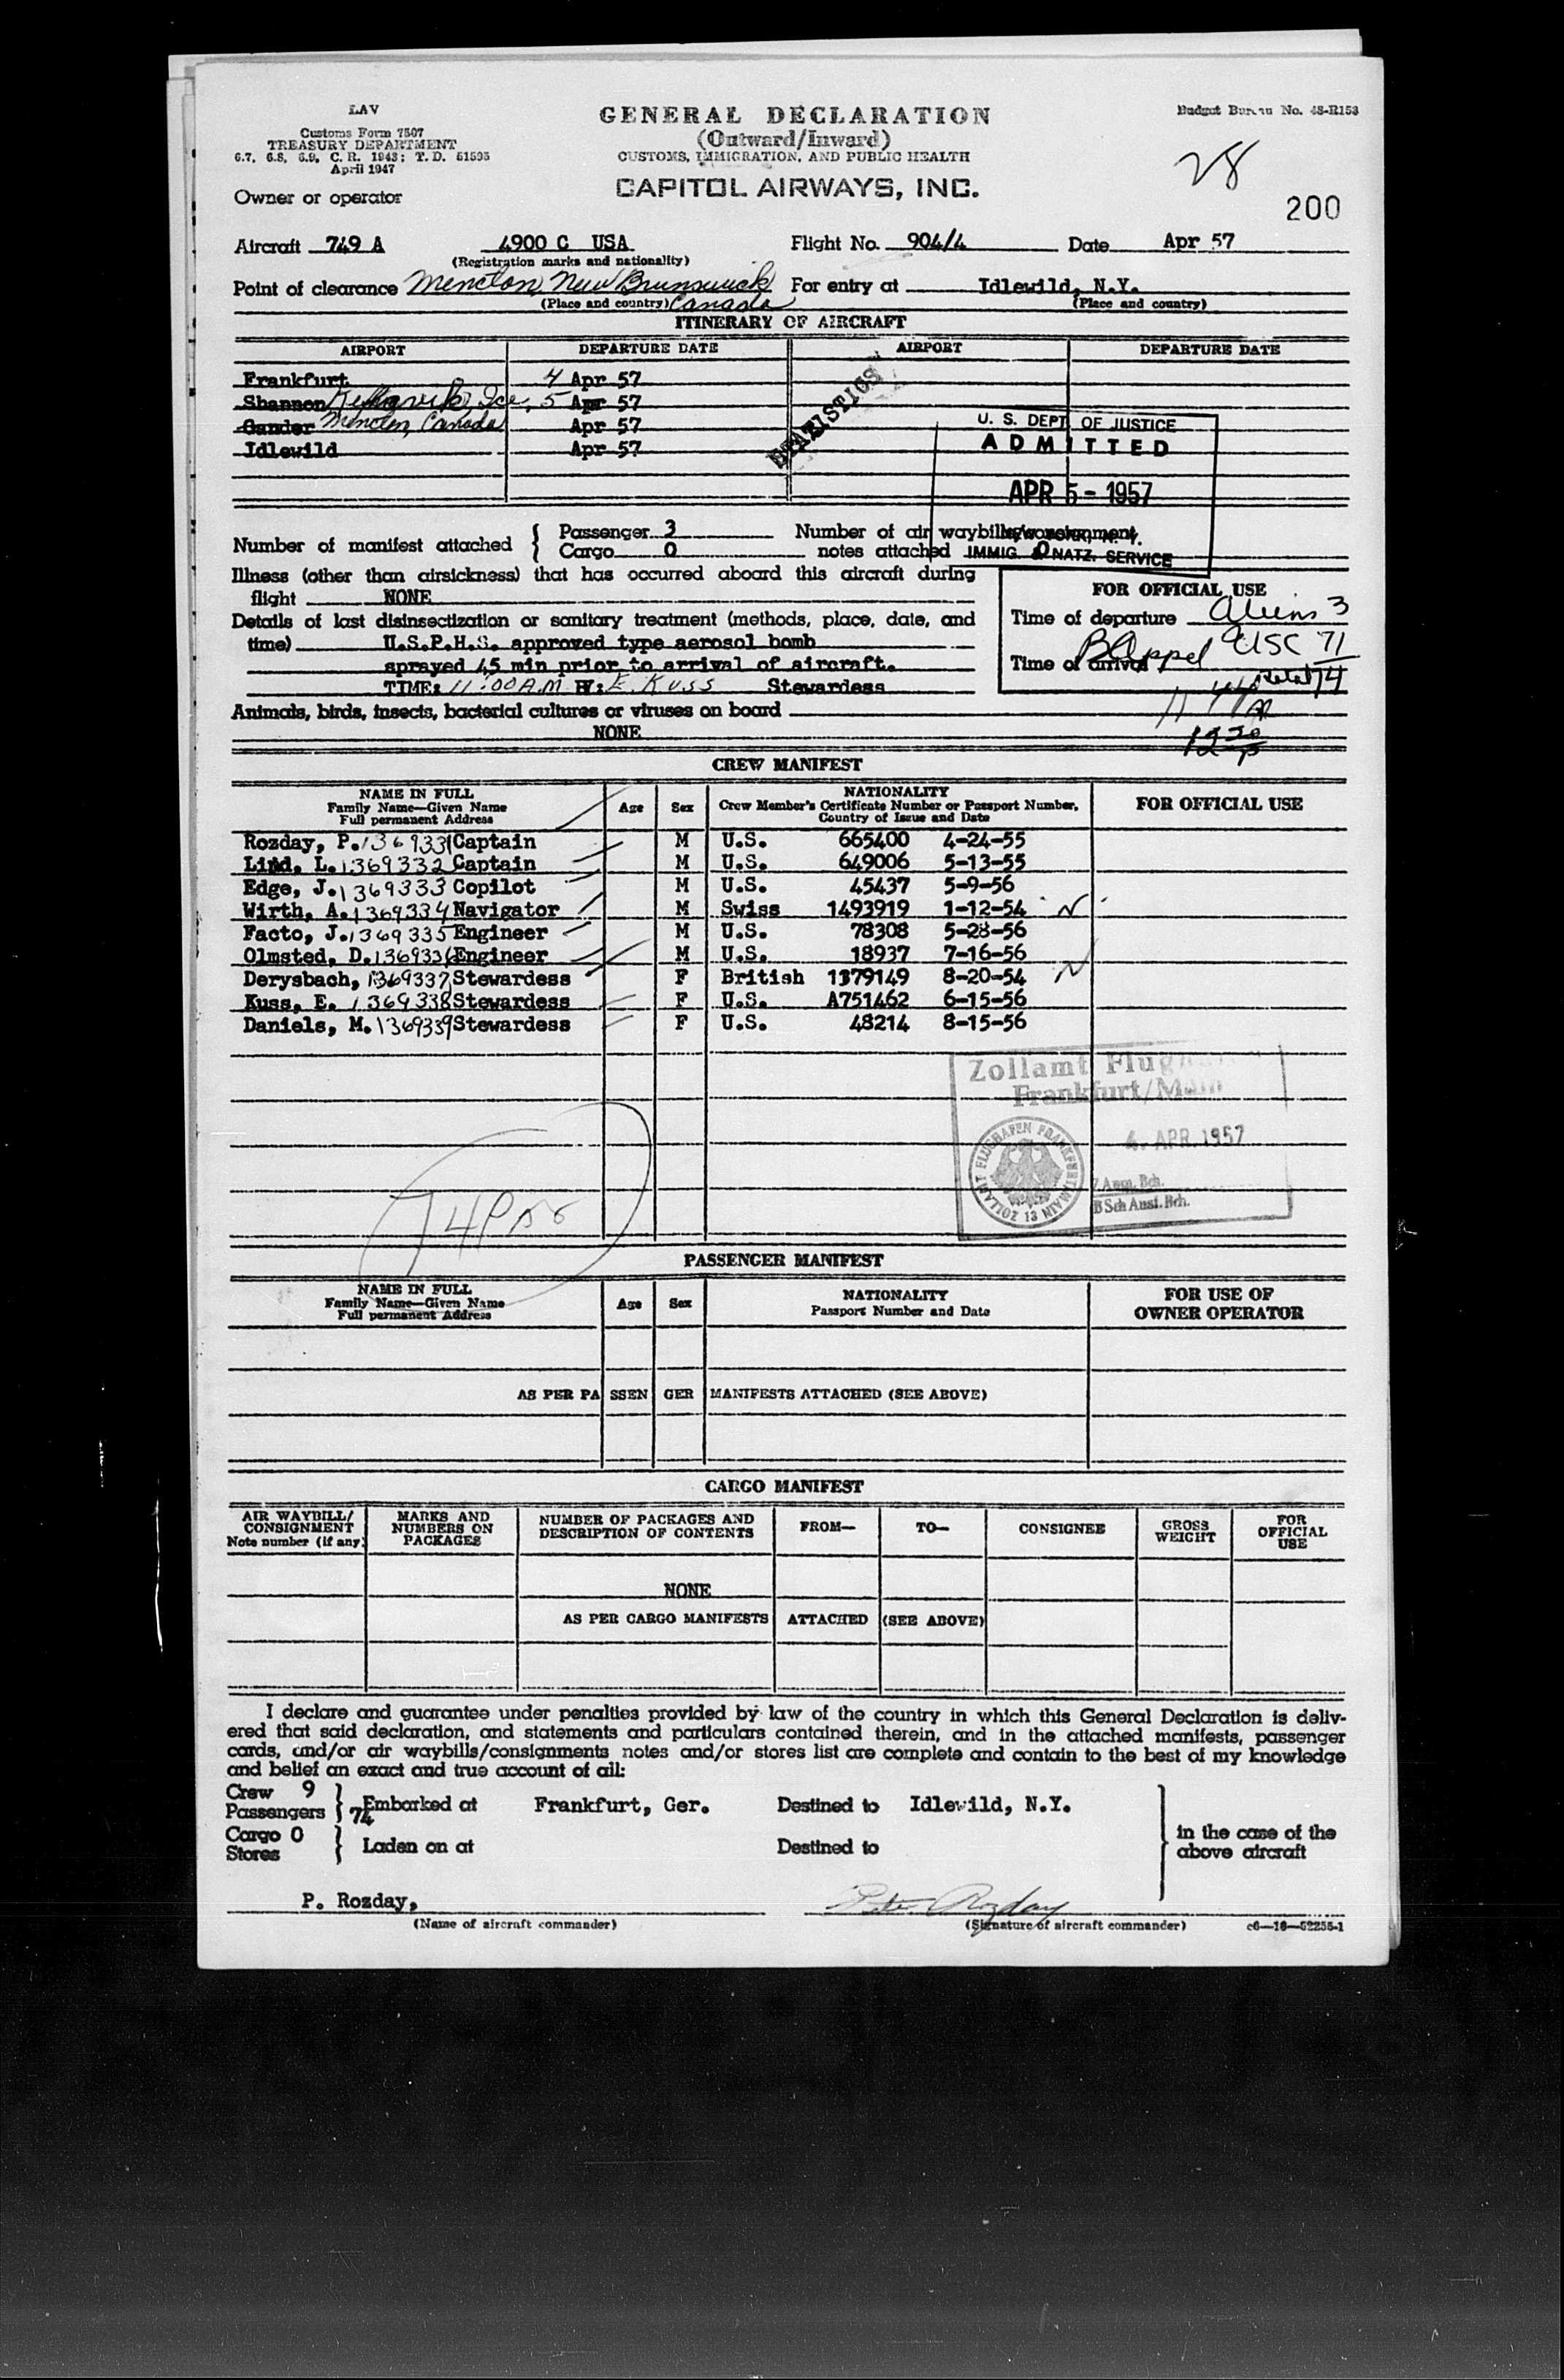 LAV
Customs Form 7507
TREASURY DEPARTMENT
6.7, 6.8, 6.9, C. R. 1943; T. D. 51595
April 1947
GENERAL DECLARATION
(Outward/Inward)
CUSTOMS, IMMIGRATION, AND PUBLIC HEALTH
CAPITOL AIRWAYS, INC.
Budget Bureau No. 48-R153
28
200
Owner or operator
Aircraft 749 A 4900 C USA Flight No. 904/4 Date Apr 57
(Registration marks and nationality)
Point of clearance Moncton New Brunswick For entry at Idlewild, N.Y.
(Place and country) Canada (Place and country)
ITINERARY OF AIRCRAFT
AIRPORT DEPARTURE DATE AIRPORT DEPARTURE DATE
Frankfurt 4 Apr 57
Shannon Keflavik, Ice, 5 Apr 57
Gander Moncton, Canada Apr 57
Idlewild Apr 57
STATISTICS
U. S. DEPT. OF JUSTICE
ADMITTED
APR 5 - 1957
IMMIG. & NATZ. SERVICE
Number of manifest attached { Passenger 3 Number of air waybills/consignment
Cargo 0 notes attached 0
Illness (other than airsickness) that has occurred aboard this aircraft during
flight NONE
Details of last disinsectization or sanitary treatment (methods, place, date, and
time) U.S.P.H.S. approved type aerosol bomb
sprayed 45 min prior to arrival of aircraft.
TIME: 11:00 A.M BY: E. KUSS Stewardess
Animals, birds, insects, bacterial cultures or viruses on board
NONE
FOR OFFICIAL USE
Time of departure Aliens 3
B Appel USC 71
Time of arrival
Total 74
12 20 P
CREW MANIFEST
NAME IN FULL
Family Name—Given Name
Full permanent Address
Age Sex
NATIONALITY
Crew Member's Certificate Number or Passport Number,
Country of Issue and Date
FOR OFFICIAL USE
Rozday, P. 1369331 Captain M U.S. 665400 4-24-55
Lind, L. 1369332 Captain M U.S. 649006 5-13-55
Edge, J. 1369333 Copilot M U.S. 45437 5-9-56
Wirth, A. 1369334 Navigator M Swiss 1493919 1-12-54
Facto, J. 1369335 Engineer M U.S. 78308 5-28-56
Olmsted, D. 1369336 Engineer M U.S. 18937 7-16-56
Derysbach, 1369337 Stewardess F British 1379149 8-20-54
Kuss, E. 1369338 Stewardess F U.S. A751462 6-15-56
Daniels, M. 1369339 Stewardess F U.S. 48214 8-15-56
Zollamt Flug
Frankfurt/Main
4. APR. 1957
ZOLLAMT FLUGHAFEN FRANKFURT/MAIN 13
B Sch Ausf. Bch.
74
PASSENGER MANIFEST
NAME IN FULL
Family Name—Given Name
Full permanent Address
Age Sex
NATIONALITY
Passport Number and Date
FOR USE OF
OWNER OPERATOR
AS PER PASSENGER MANIFESTS ATTACHED (SEE ABOVE)
CARGO MANIFEST
AIR WAYBILL/
CONSIGNMENT
Note number (if any)
MARKS AND
NUMBERS ON
PACKAGES
NUMBER OF PACKAGES AND
DESCRIPTION OF CONTENTS
FROM— TO— CONSIGNEE
GROSS
WEIGHT
FOR
OFFICIAL
USE
NONE
AS PER CARGO MANIFESTS ATTACHED (SEE ABOVE)
I declare and guarantee under penalties provided by law of the country in which this General Declaration is deliv-
ered that said declaration, and statements and particulars contained therein, and in the attached manifests, passenger
cards, and/or air waybills/consignments notes and/or stores list are complete and contain to the best of my knowledge
and belief an exact and true account of all:
Crew 9
Passengers 74 } Embarked at Frankfurt, Ger. Destined to Idlewild, N.Y.
Cargo 0
Stores } Laden on at Destined to
in the case of the
above aircraft
P. Rozday,
Pete Rozday
(Name of aircraft commander) (Signature of aircraft commander) c6—16—52255-1